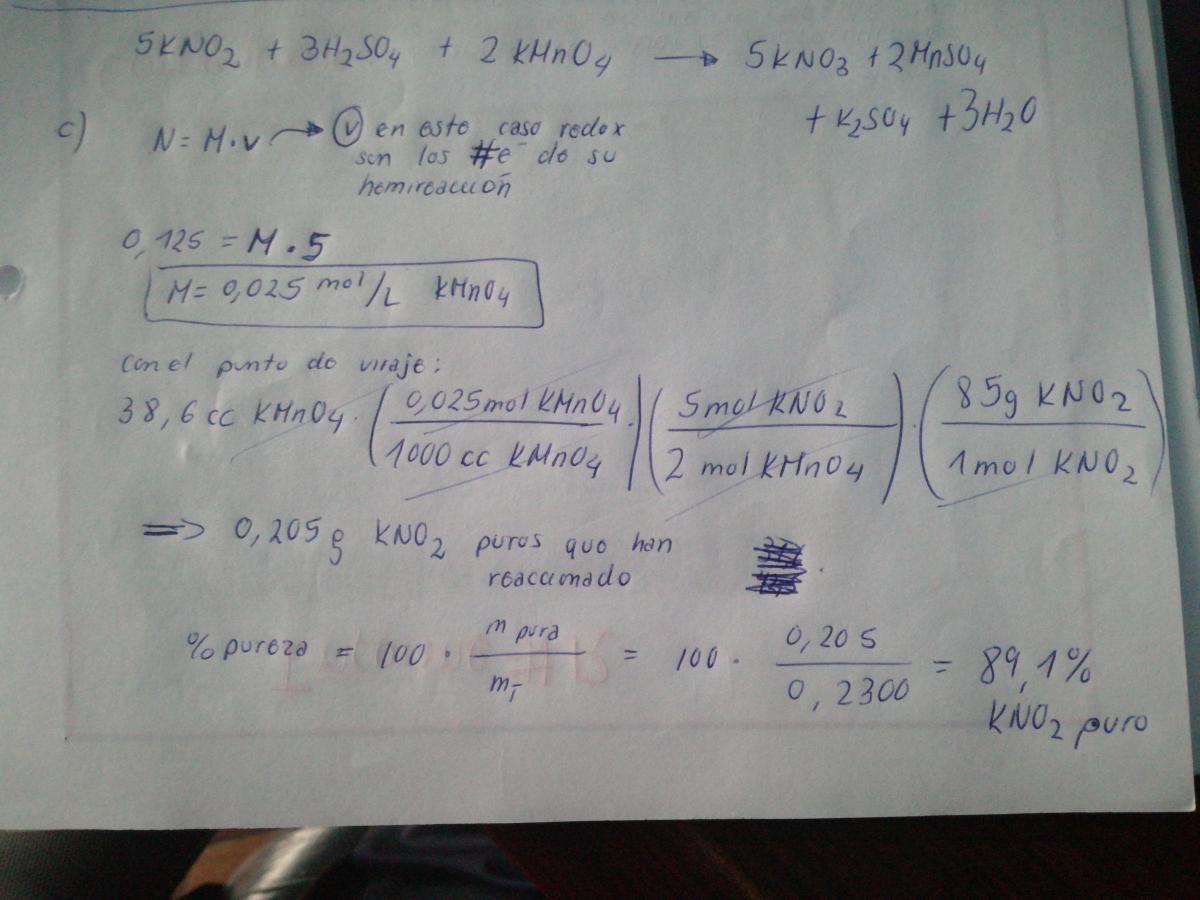 5KNO₂ + 3H₂SO₄ + 2 KMnO₄ → 5KNO₃ + 2MnSO₄
+ K₂SO₄ + 3H₂O
c) N = M·v → ⓥ en este caso redox
son los #e⁻ de su
hemireacción
0,125 = M · 5
M = 0,025 mol/L KMnO₄
con el punto de viraje:
38,6 cc KMnO₄ · (0,025 mol KMnO₄ / 1000 cc KMnO₄) · (5 mol KNO₂ / 2 mol KMnO₄) · (85g KNO₂ / 1 mol KNO₂)
=> 0,205 g KNO₂ puros que han
reaccionado
% pureza = 100 · m pura / m_T = 100 · 0,205 / 0,2300 = 89,1%
KNO₂ puro